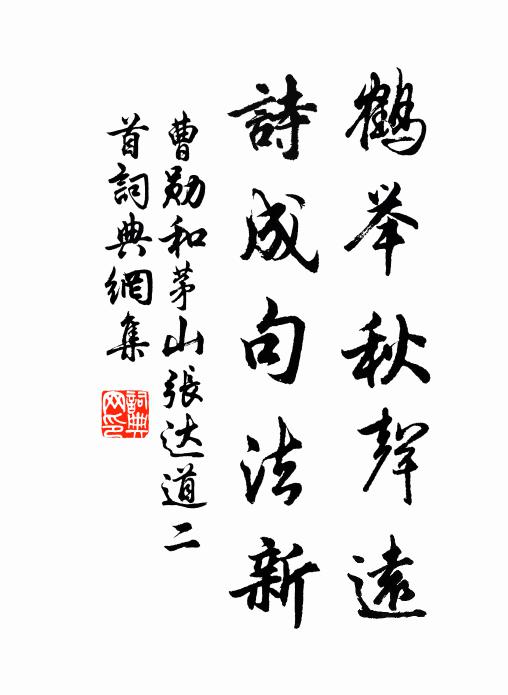 鶴举秋聲遠
詩成句法新
曹勋和茅山張达道二
首詞典網集
詞典网印